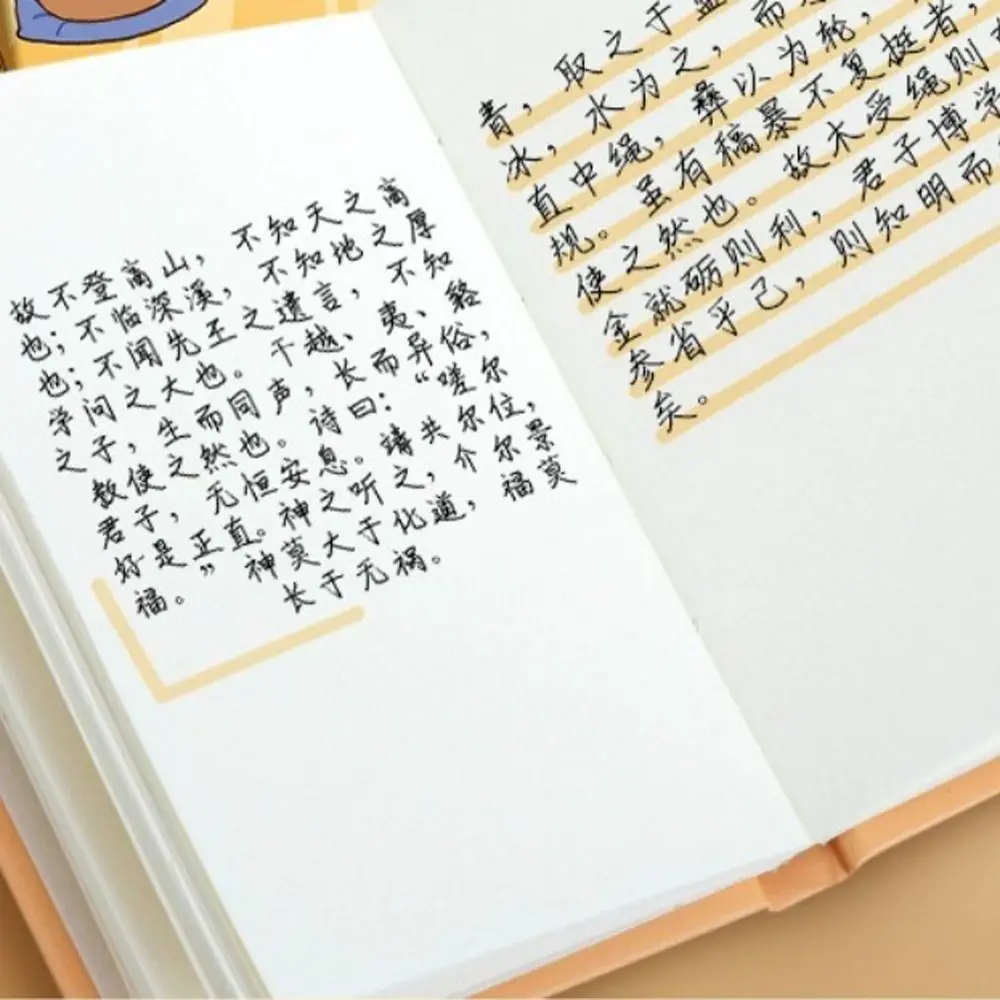 故不登高山，不知天之高
也；不临深溪，不知地之厚
也；不闻先王之遗言，不知
学问之大也。干越、夷、貉
之子，生而同声，长而异俗，
教使之然也。诗曰：“嗟尔
君子，无恒安息。靖共尔位，
好是正直。神之听之，介尔景
福。”神莫大于化道，福莫
长于无祸。
青，取之于
冰，水为之，而
直中绳，彝以为轮，
规。虽有稿暴不复挺者，
使之然也。故木受绳则
金就砺则利，君子博学
参省乎己，则知明而
矣。